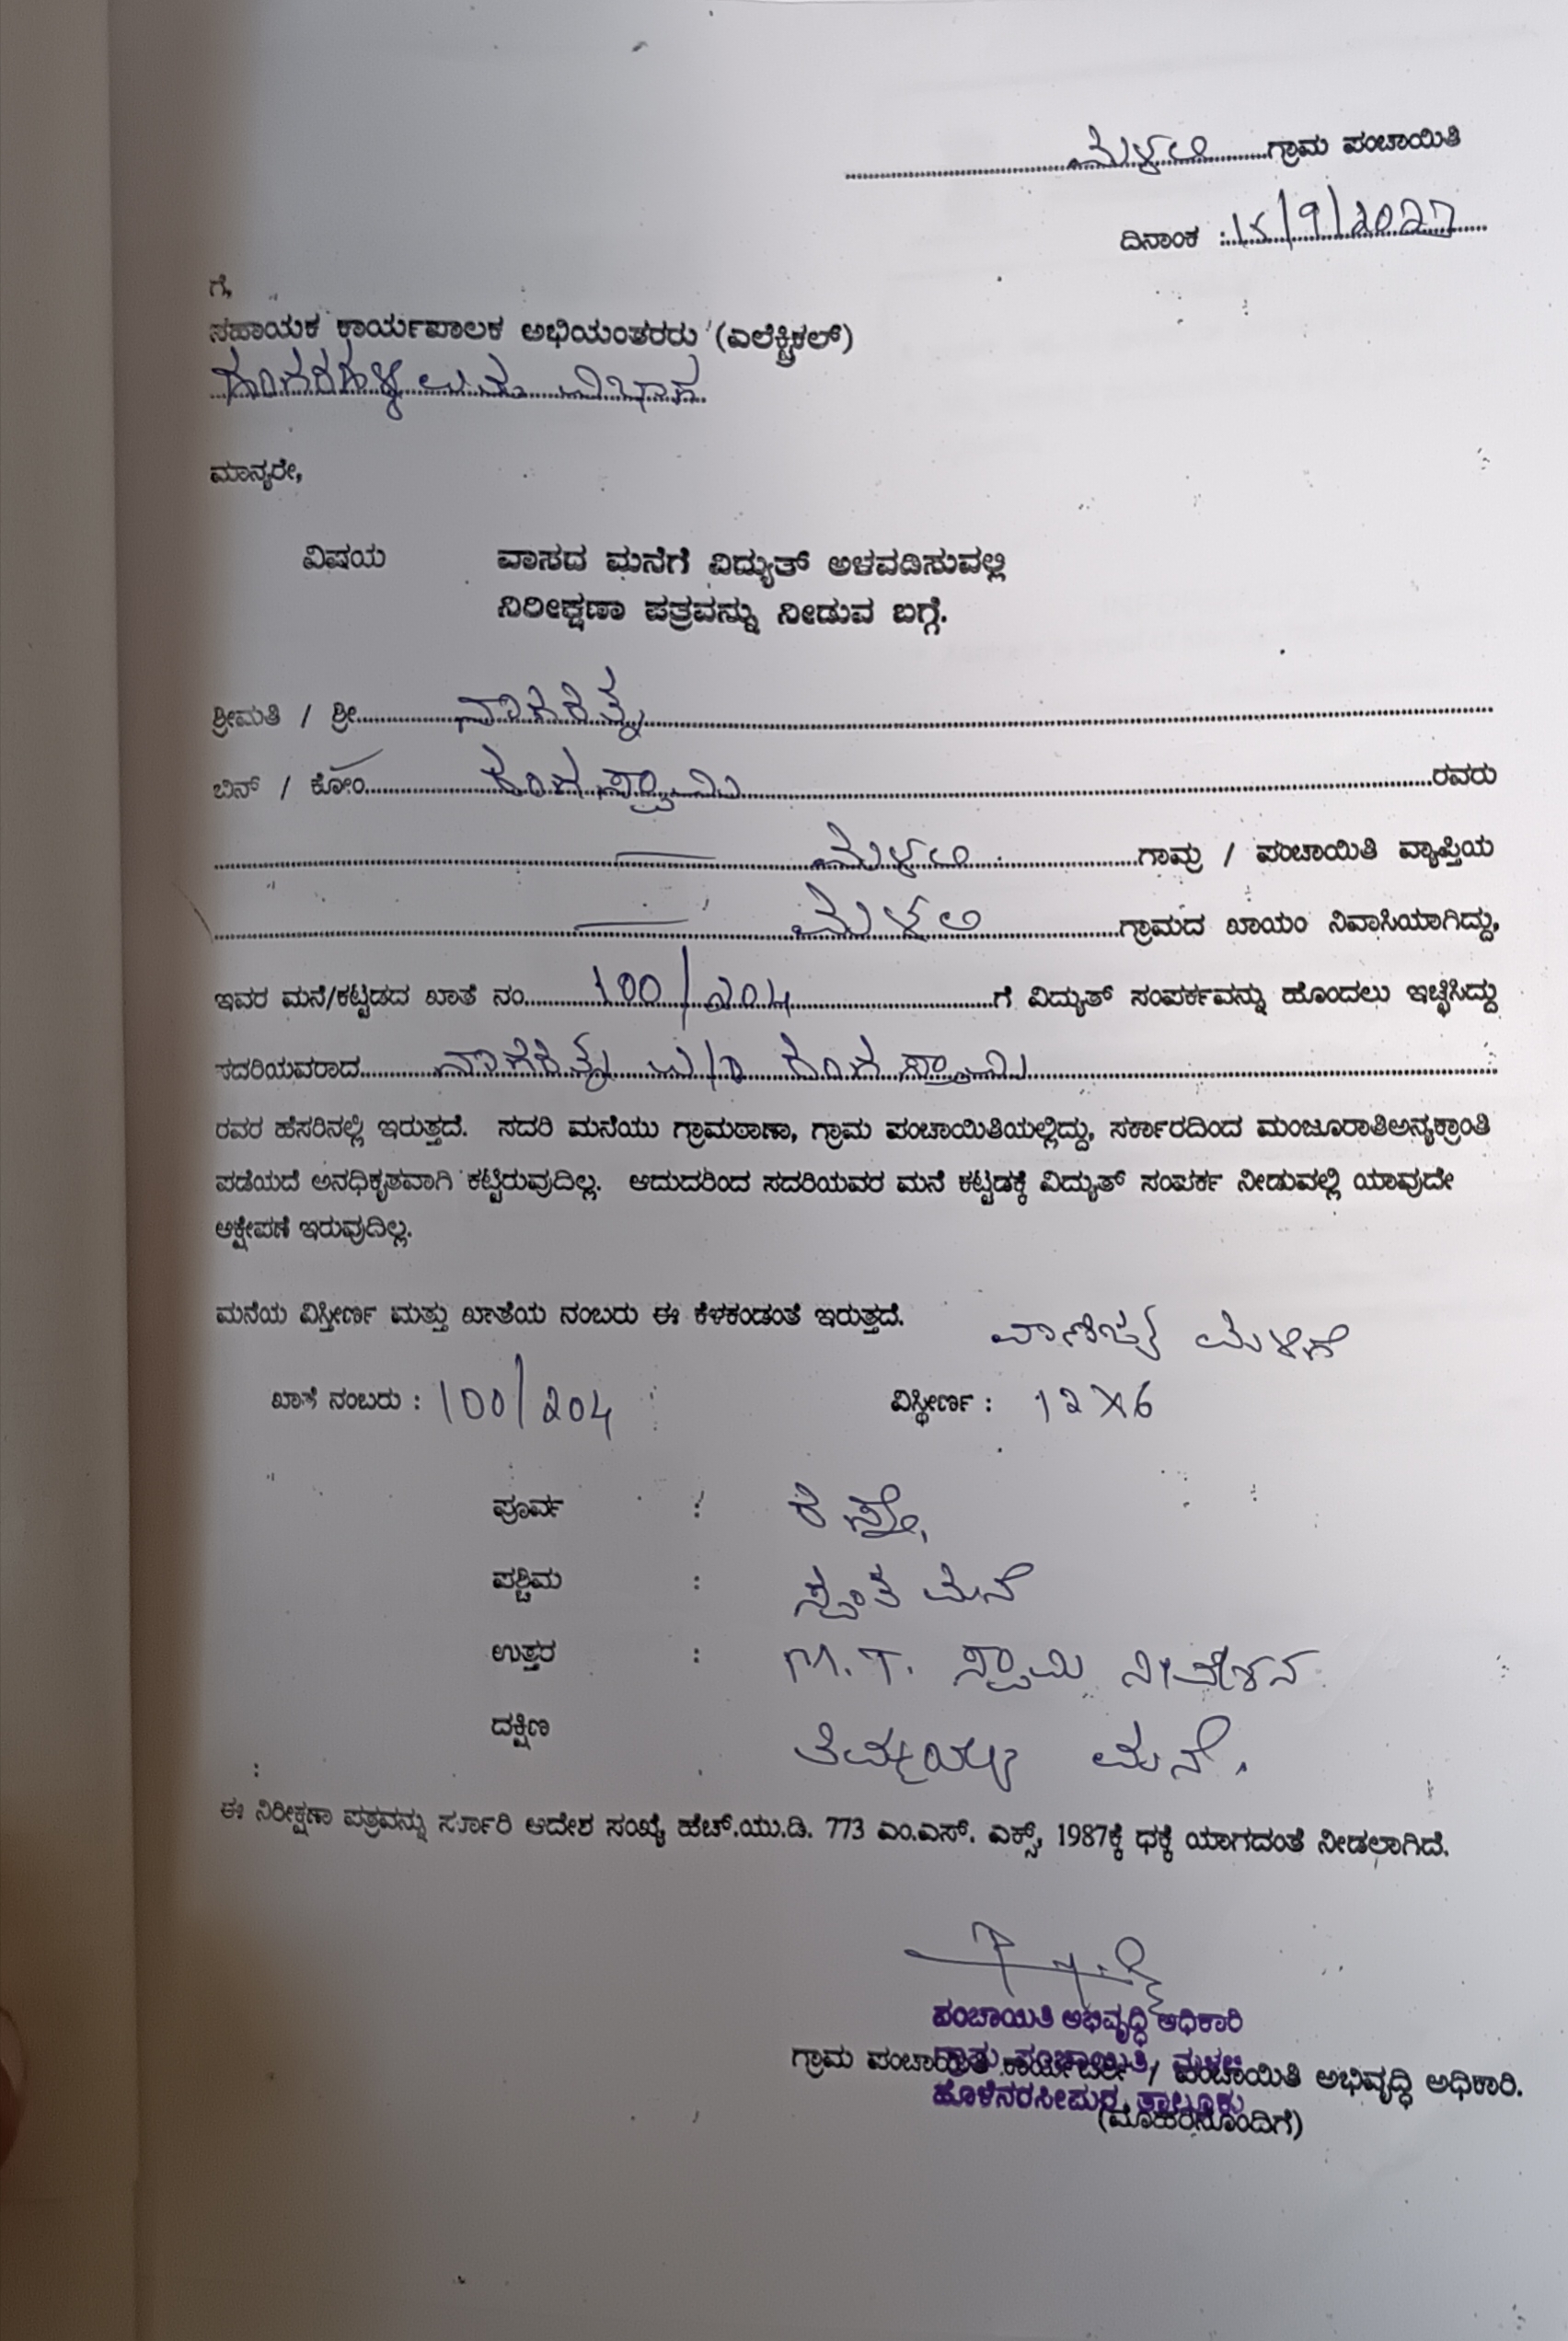 ಮಳಲಿ ಗ್ರಾಮ ಪಂಚಾಯಿತಿ
ದಿನಾಂಕ : 15/9/2022
ಗೆ,
ಸಹಾಯಕ ಕಾರ್ಯಪಾಲಕ ಅಭಿಯಂತರರು (ಎಲೆಕ್ಟ್ರಿಕಲ್)
ಉಪ ವಿಭಾಗ
ಮಾನ್ಯರೇ,
ವಿಷಯ ವಾಸದ ಮನೆಗೆ ವಿದ್ಯುತ್ ಅಳವಡಿಸುವಲ್ಲಿ
ನಿರೀಕ್ಷಣಾ ಪತ್ರವನ್ನು ನೀಡುವ ಬಗ್ಗೆ.
ಶ್ರೀಮತಿ / ಶ್ರೀ ನಾಗರತ್ನ
ಬಿನ್ / ಕೋಂ ರಂಗಸ್ವಾಮಿ ರವರು
ಮಳಲಿ ಗ್ರಾಮ / ಪಂಚಾಯಿತಿ ವ್ಯಾಪ್ತಿಯ
ಮಳಲಿ ಗ್ರಾಮದ ಖಾಯಂ ನಿವಾಸಿಯಾಗಿದ್ದು,
ಇವರ ಮನೆ/ಕಟ್ಟಡದ ಖಾತೆ ನಂ. 100/204 ಗೆ ವಿದ್ಯುತ್ ಸಂಪರ್ಕವನ್ನು ಹೊಂದಲು ಇಚ್ಛಿಸಿದ್ದು
ಸದರಿಯವರಾದ ನಾಗರತ್ನ ರಂಗಸ್ವಾಮಿ
ರವರ ಹೆಸರಿನಲ್ಲಿ ಇರುತ್ತದೆ. ಸದರಿ ಮನೆಯು ಗ್ರಾಮಠಾಣಾ, ಗ್ರಾಮ ಪಂಚಾಯಿತಿಯಲ್ಲಿದ್ದು, ಸರ್ಕಾರದಿಂದ ಮಂಜೂರಾತಿಅನ್ಯಕ್ರಾಂತಿ
ಪಡೆಯದೆ ಅನಧಿಕೃತವಾಗಿ ಕಟ್ಟಿರುವುದಿಲ್ಲ. ಆದುದರಿಂದ ಸದರಿಯವರ ಮನೆ ಕಟ್ಟಡಕ್ಕೆ ವಿದ್ಯುತ್ ಸಂಪರ್ಕ ನೀಡುವಲ್ಲಿ ಯಾವುದೇ
ಆಕ್ಷೇಪಣೆ ಇರುವುದಿಲ್ಲ.
ಮನೆಯ ವಿಸ್ತೀರ್ಣ ಮತ್ತು ಖಾತೆಯ ನಂಬರು ಈ ಕೆಳಕಂಡಂತೆ ಇರುತ್ತದೆ.
ವಾಣಿಜ್ಯ ಮಳಿಗೆ
ಖಾತೆ ನಂಬರು : 100/204 ವಿಸ್ತೀರ್ಣ : 12X6
ಪೂರ್ವ : ರಸ್ತೆ,
ಪಶ್ಚಿಮ : ಸ್ವಂತ ಮನೆ
ಉತ್ತರ : M.T. ಸ್ವಾಮಿ ನಿವೇಶನ
ದಕ್ಷಿಣ : ತಿಮ್ಮಯ್ಯ ಮನೆ.
ಈ ನಿರೀಕ್ಷಣಾ ಪತ್ರವನ್ನು ಸರ್ಕಾರಿ ಆದೇಶ ಸಂಖ್ಯೆ ಹೆಚ್.ಯು.ಡಿ. 773 ಎಂ.ಎಸ್. ಎಕ್ಸ್, 1987ಕ್ಕೆ ಧಕ್ಕೆ ಯಾಗದಂತೆ ನೀಡಲಾಗಿದೆ.
ಪಂಚಾಯಿತಿ ಅಭಿವೃದ್ಧಿ ಅಧಿಕಾರಿ
ಗ್ರಾಮ ಪಂಚಾಯಿತಿ, ಮಳಲಿ
ಗ್ರಾಮ ಪಂಚಾಯಿತಿ ಕಾರ್ಯದರ್ಶಿ / ಪಂಚಾಯಿತಿ ಅಭಿವೃದ್ಧಿ ಅಧಿಕಾರಿ.
ಹೊಳೆನರಸೀಪುರ ತಾಲ್ಲೂಕು
(ಮೊಹರಿನೊಂದಿಗೆ)